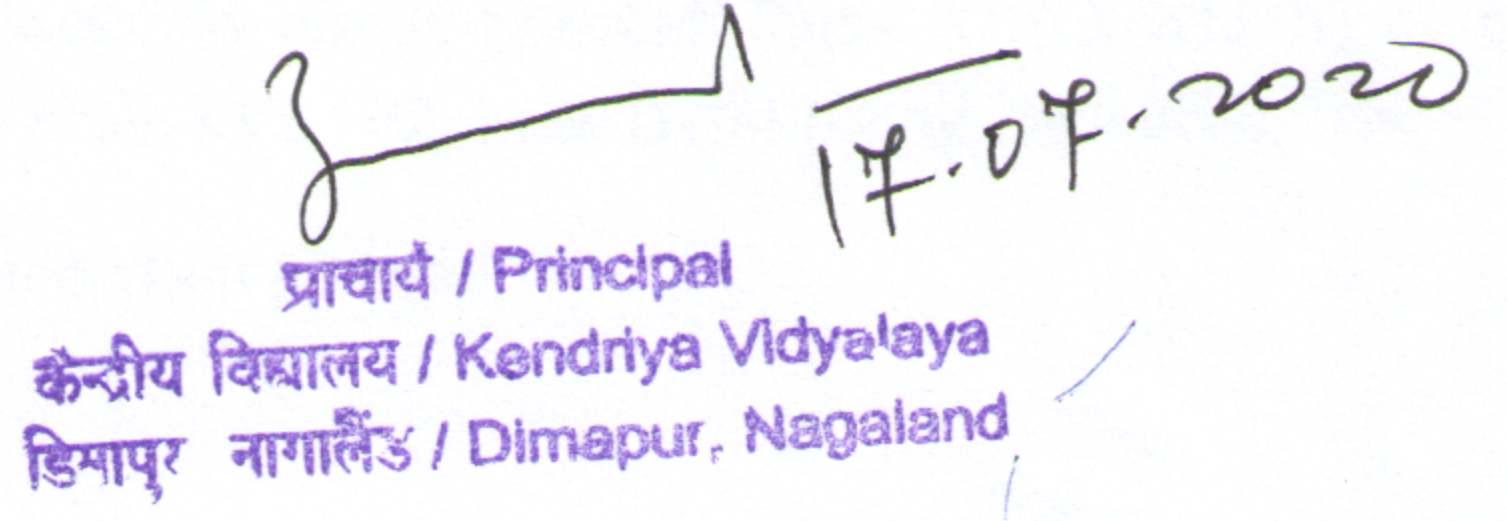 17.07.2020
प्राचार्य / Principal
केन्द्रीय विद्यालय / Kendriya Vidyalaya
डिमापुर नागालैंड / Dimapur, Nagaland